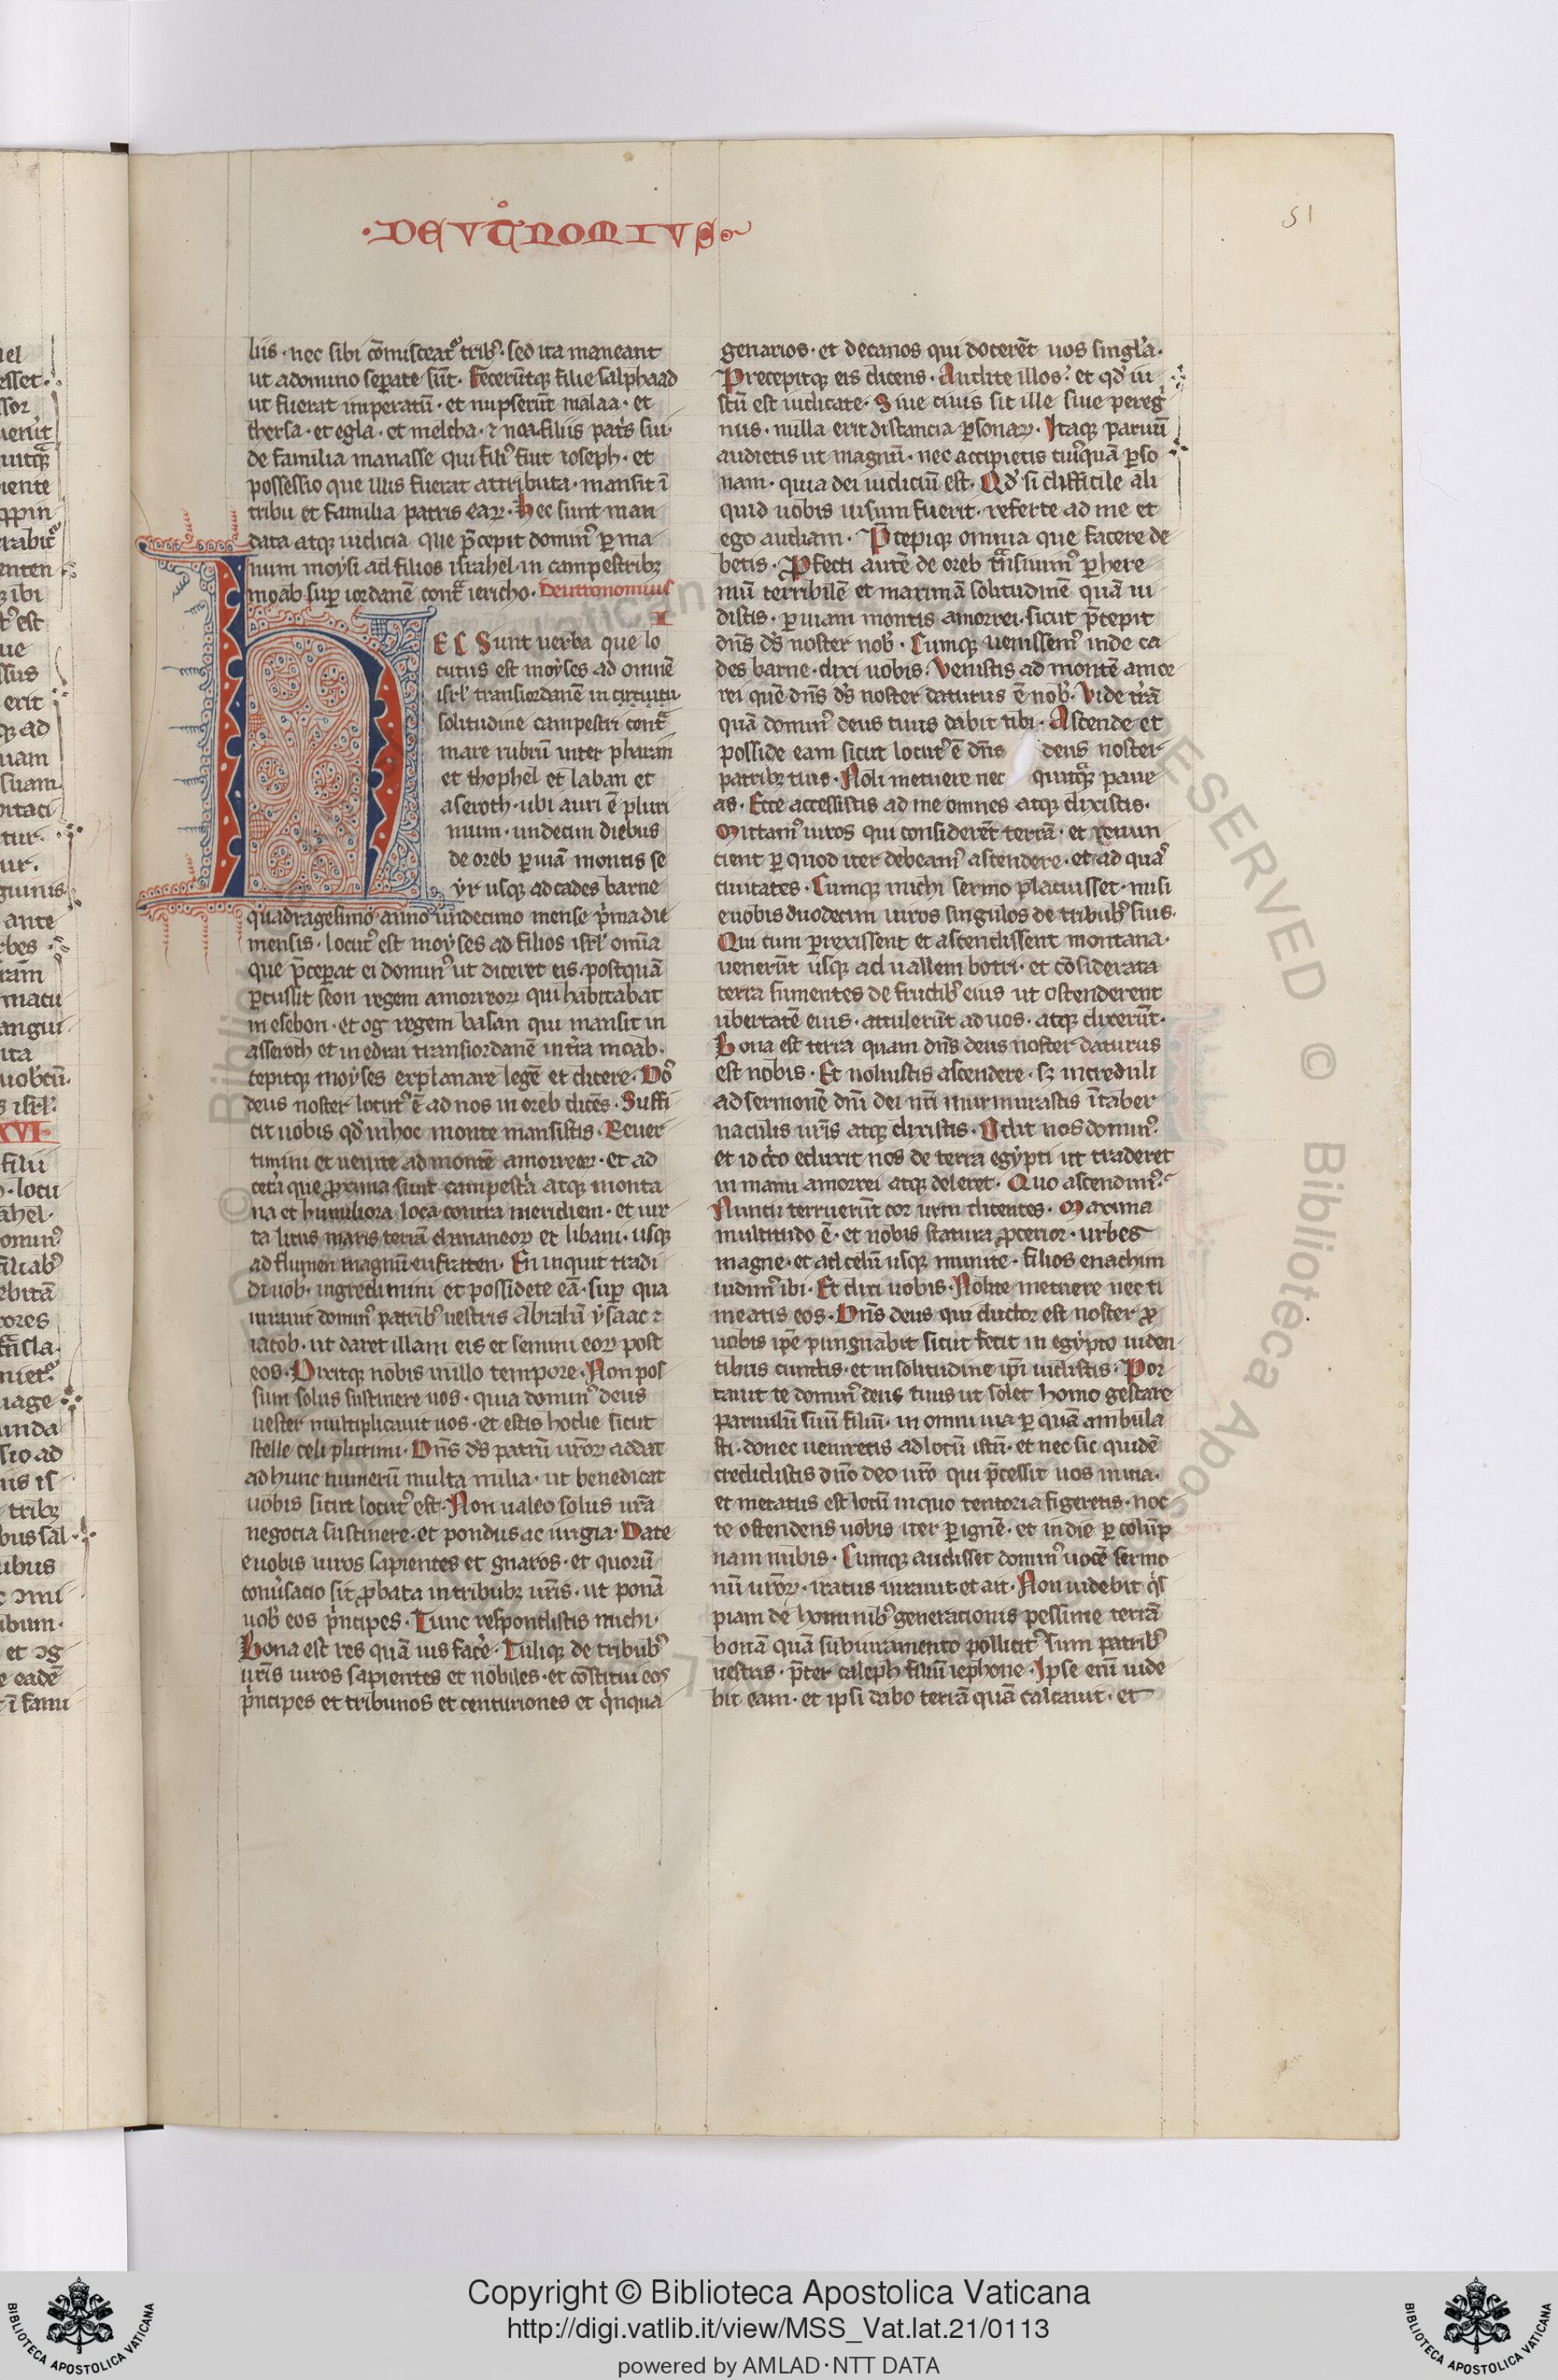 ·DEUT̊NOMIUS·
51
liis · nec sibi cōmisceatᷣ tribꝰ · sed ita maneant
ut a domino seꝑate sūt · Fecerūtqꝫ filie salphaad
ut fuerat imperatū · et nupserūt malaa · et
thersa · et egla · et melcha · ⁊ noa filiis patͥs sui ·
de familia manasse qui filiꝰ fuit ioseph · et
possessio que illis fuerat attributa · mansit ī
tribu et familia patris eaꝝ · Hec sunt man
data atqꝫ iudicia que p̄cepit dominꝰ ꝑ ma
num moysi ad filios israhel · in campestribꝫ
moab suꝑ iordanē contᷓ iericho · Deutronomius
I
EC Sunt uerba que lo
cutus est moyses ad omnē
isrl̄ transiordanē in circuitu
solitudine campestri contᷓ
mare rubrū inter pharan
et thophel et laban et
aseroth · ubi auri ē pluri
mum · undecim diebus
de oreb ꝑ uiā montis se
yr usqꝫ ad cades barne
quadragesimo anno undecimo mense pͥma die
mensis · locutꝰ est moyses ad filios isrl̄ omīa
que p̄ceꝑat ei dominꝰ ut diceret eis · postquā
ꝑcussit seon regem amorreoꝝ qui habitabat
in esebon · et og regem basan qui mansit in
asseroth et in edrai transiordanē in tr̄ra moab ·
cepitqꝫ moyses explanare legē et dicere · Dō
deus noster locutꝰ ē ad nos in oreb dicēs · Suffi
cit uobis qd̓ in hoc monte mansistis · Reuer
timini et uenite ad montē amorreoꝝ · et ad
cet̓a que ꝓxima sunt campestᷓ atqꝫ monta
na et humiliora loca contra meridiem · et iux
ta litus maris terrā chananeoꝝ et libani · usqꝫ
ad flumen magnū eufraten · En inquit tradi
di uob̓ · ingredimini et possidete eā · suꝑ qua
iurauit dominꝰ patribꝰ uestris Abrahā ysaac ⁊
iacob · ut daret illam eis et semini eoꝝ post
eos · Dixitqꝫ nobis in illo tempore · Non pos
sum solus sustinere uos · quia dominꝰ deus
uester multiplicauit uos · et estis hodie sicut
stelle celi plurimi · Dn̄s ds̄ patrū ur̄oꝝ addat
ad hunc numerū multa milia · ut benedicat
uobis sicut locutꝰ est · Non ualeo solus ur̄a
negocia sustinere · et pondus ac iurgia · Date
e uobis uiros sapientes et gnaros · et quorū
conu̓sacio sit ꝓbata in tribubꝫ ur̄is · ut ponā
uob̓ eos pͥncipes · Tunc respondistis michi ·
Bona est res quā uis fac̓e · Tuliqꝫ de tribubꝰ
ur̄is uiros sapientes et nobiles · et cōstitui eos
pͥncipes et tribunos et centuriones et qͥnqua
genarios · et decanos qui docerēt uos singl̓a ·
Precepitqꝫ eis dicens · Audite illos · et qd̓ iu
stū est iudicate · Siue ciuis sit ille siue pereg
nus · nulla erit distancia ꝑsonaꝝ · Itaqꝫ paruū
audietis ut magnū · nec accipietis cuiꝰquā ꝑso
nam · quia dei iudiciū est · Qd̓ si difficile ali
quid uobis uisum fuerit · referte ad me et
ego audiam · P̄cepiqꝫ omnia que facere de
betis · Ꝓfecti autē de oreb tᷓnsiuimꝰ ꝑ here
mū terribilē et maximā solitudinē quā ui
distis · ꝑ uiam montis amorrei · sicut p̄cepit
dn̄s ds̄ noster nob̓ · Cumqꝫ uenissemꝰ inde ca
des barne · dixi uobis · Venistis ad montē amor
rei quē dn̄s ds̄ noster daturus ē nob̓ · Vide tr̄rā
quā dominꝰ deus tuus dabit tibi · Ascende et
posside eam sicut locutꝰ ē dn̄s deus noster
patribꝫ tuis · Noli metuere nec quicqᷓ paue
as · Ecce accessistis ad me omnes atqꝫ dixistis ·
Mittamꝰ uiros qui considerēt terrā · et renun
cient ꝑ quod iter debeamꝰ ascendere · et ad quas
ciuitates · Cumqꝫ michi sermo placuisset · misi
e uobis duodecim uiros singulos de tribubꝰ suis ·
Qui cum ꝑrexissent et ascendissent montana ·
uenerūt usqꝫ ad uallem botri · et cōsiderata
terra sumentes de fructibꝰ eius ut ostenderent
ubertatē eius · attulerūt ad uos · atqꝫ dixerūt ·
Bona est terra quam dn̄s deus noster daturus
est nobis · Et noluistis ascendere · sꝫ increduli
ad sermonē dn̄i dei nr̄i murmurastis ī taber
naculis ur̄is atqꝫ dixistis · Odit nos dominꝰ ·
et idcͦco eduxit nos de terra egypti ut traderet
in manu amorrei atqꝫ deleret · Quo ascendimꝰ ·
Nuncii terruerūt cor ur̄m dicentes · Maxima
multitudo ē · et nobis statura ꝓcerior · urbes
magne · et ad celū usqꝫ munite · filios enachim
uidimꝰ ibi · Et dixi uobis · Nolite metuere nec ti
meatis eos · Dn̄s deus qui ductor est noster ꝓ
uobis ip̄e pungnabit sicut fecit in egypto uiden
tibus cunctis · et in solitudine ip̄i uidistis · Por
tauit te dominꝰ deus tuus ut solet homo gestare
paruulū suū filiū · in omni uia ꝑ quā ambula
sti · donec ueniretis ad locū istū · et nec sic quidē
credidistis dn̄o deo ur̄o qui p̄cessit uos in uia ·
et metatus est locū in quo tentoria figeretis · noc
te ostendens uobis iter ꝑ ignē · et in die ꝑ colūp
nam nubis · Cumqꝫ audisset dominꝰ uocē sermo
nū ur̄oꝝ · iratus iurauit et ait · Non uidebit qͥs
piam de hominibꝰ generacionis pessime terrā
bonā quā sub iuramento pollicitꝰ sum patribꝰ
uestris · p̄ter caleph filiū iephone · Ipse enī uide
bit eam · et ipsi dabo terrā quā calcauit · et
Copyright © Biblioteca Apostolica Vaticana
http://digi.vatlib.it/view/MSS_Vat.lat.21/0113
powered by AMLAD·NTT DATA
BIBLIOTECA APOSTOLICA VATICANA
BIBLIOTECA APOSTOLICA VATICANA